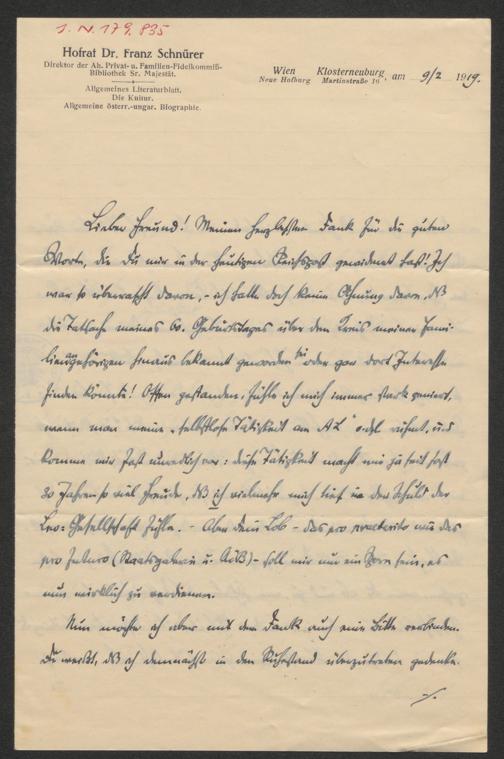 J. N. 179.835
Hofrat Dr. Franz Schnürer
Direktor der Ah. Privat- u. Familien-Fideikommiß-
Bibliothek Sr. Majestät.
Allgemeines Literaturblatt.
Die Kultur.
Allgemeine österr.-ungar. Biographie.
Wien Klosterneuburg, am 9/2 1919.
Neue Hofburg Martinstraße 16
Lieber Freund! Meinen herzlichsten Dank für die guten
Worte, die Du mir in der heutigen Reichspost gewidmet hast! Ich
war so überrascht davon, - ich hatte doch keine Ahnung davon, daß
die Tatsache meines 60. Geburtstages über den Kreis meiner Fami-
lienangehörigen hinaus bekannt geworden sei oder gar dort Interesse
finden könnte! Offen gestanden, fühle ich mich immer stark geniert,
wenn man meine „selbstlose Tätigkeit am AL" odgl rühmt, und
komme mir fast unredlich vor: diese Tätigkeit macht mir ja seit fast
30 Jahren so viel Freude, daß ich vielmehr mich tief in der Schuld der
Leo-Gesellschaft fühle. - Aber Dein Lob - das pro praeterito wie das
pro futuro (Staatsgalerie u. AdB) - soll mir nur ein Sporn sein, es
nun wirklich zu verdienen.
Nun möchte ich aber mit dem Dank auch eine Bitte verbinden.
Du weißt, daß ich demnächst in den Ruhestand überzutreten gedenke.
./.